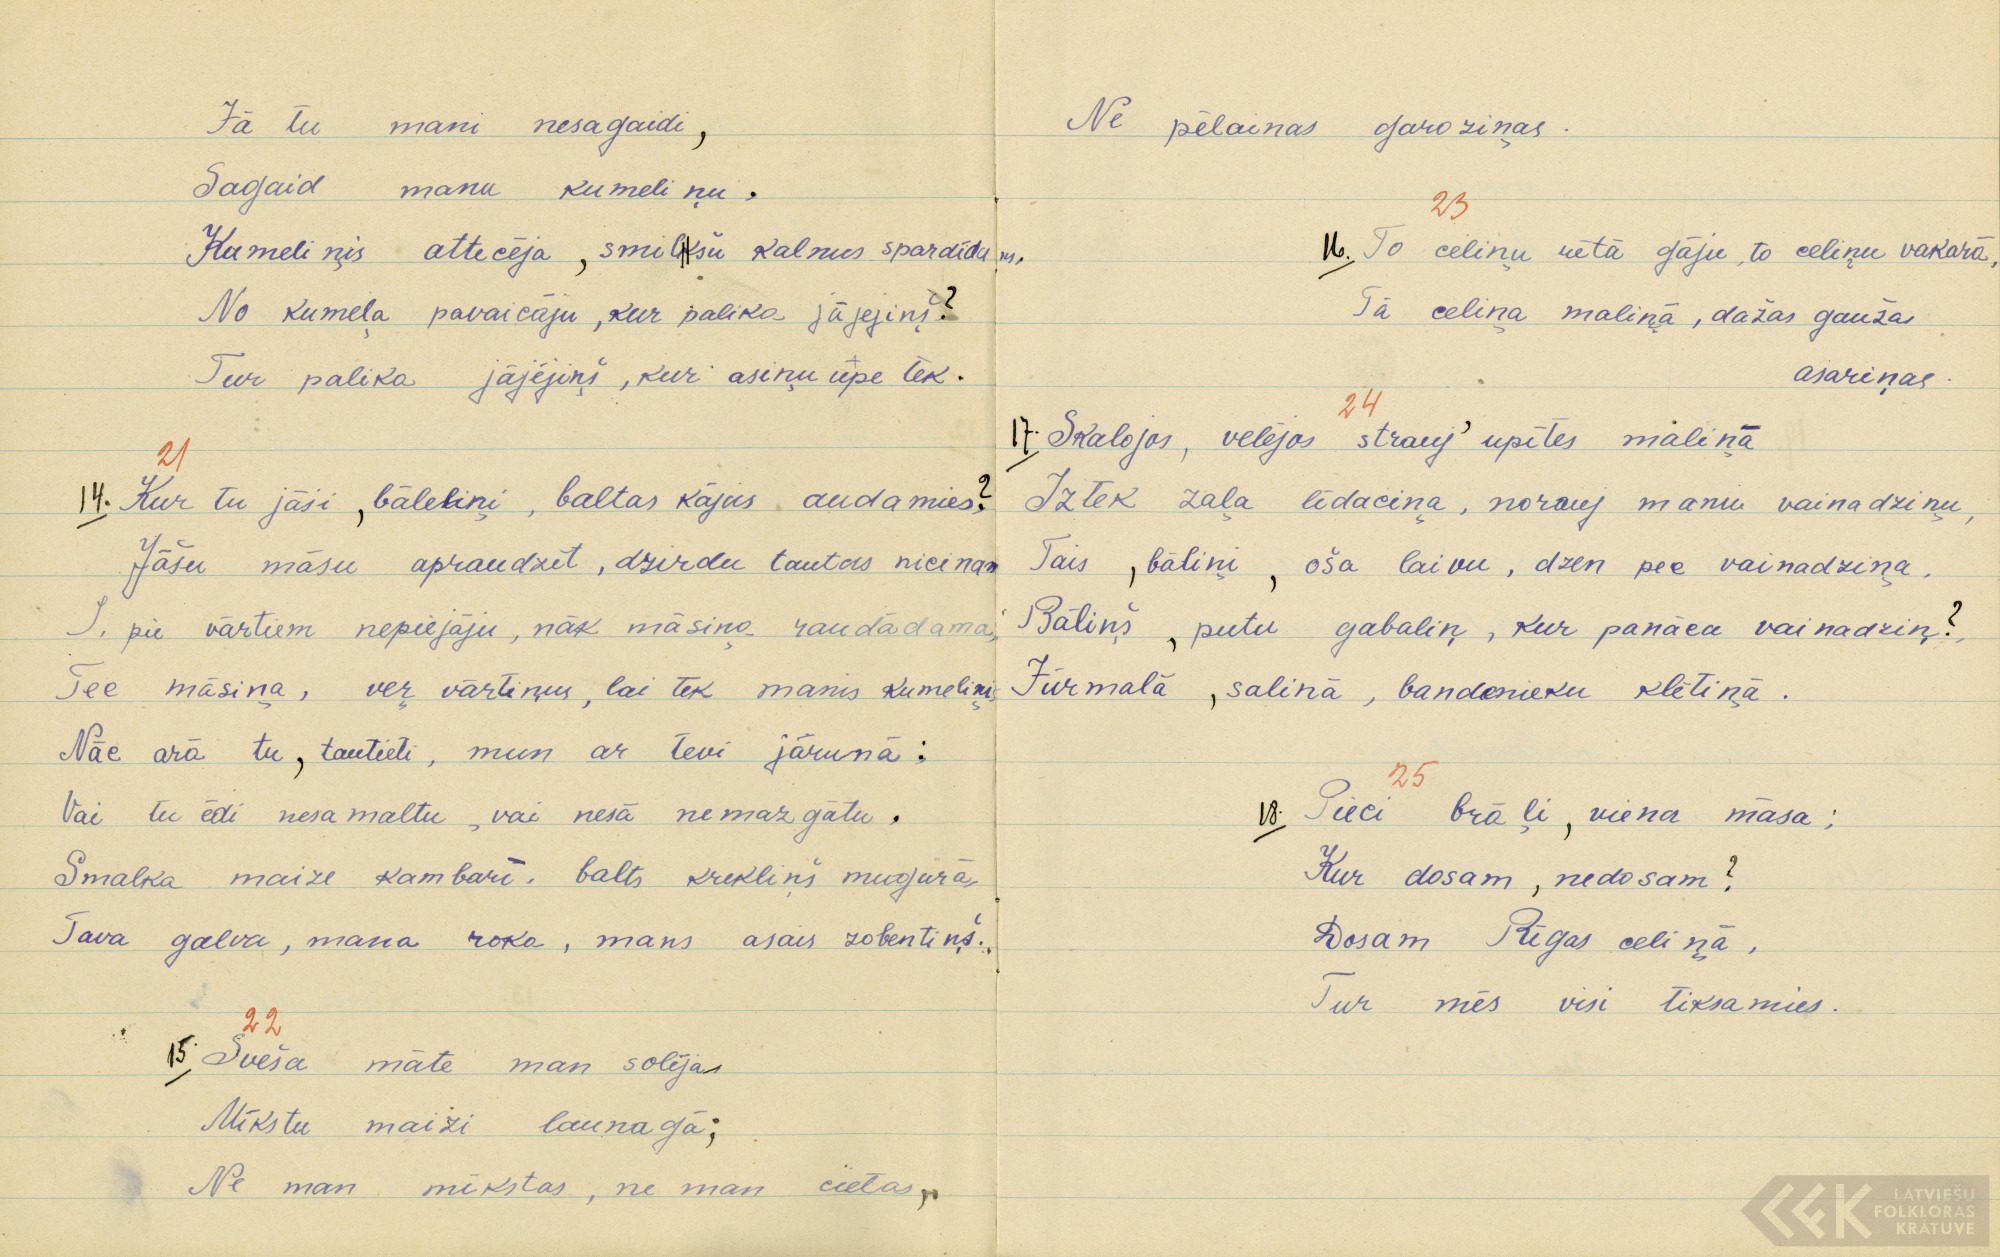 Jā tu mani nesagaidi,
Sagaid manu kumeliņu.
Kumeliņis attecēja, smilkšu kalnus spardīdams.
No kumeļa pavaicāju, kur palika jājejiņš?
Tur palika jājējiņš, kur asiņu upe tek.
21
14. Kur tu jāsi, bāleliņi, baltas kājus audamies?
Jāšu māsu apraudzēt, dzirdu tautas nicinam
I, pie vārtiem nepiejāju, nāk māsiņa raudādama,
Tec māsiņa, veŗ vārtiņus, lai tek manis kumeliņis
Nāc arā tu, tautieti, mun ar tevi jārunā:
Vai tu ēdi nesamaltu, vai nesā nemazgātu.
Smalka maize kambarī, balts krekliņš mugurā,
Tava galva, mana roka, mans asais zobentiņš.
22
15. Sveša māte man solēja
Mīkstu maizi launagā;
Ne man mīkstas, ne man cietas,
Ne pēlainas garoziņas.
23
16. To celiņu rētā gāju, to celiņu vakarā,
Tā celiņa maliņā, dažas gaužas
asariņas.
24
17. Skalojos, velējos strauj' upītes maliņā
Iztek zaļa līdaciņa, norauj manu vainadziņu,
Tais, bāliņi, oša laivu, dzen pēc vainadziņa.
Bāliņš, putu gabaliņ, kur panāca vainadziņ?
Jūrmalā, saliņā, bandenieku klētiņā.
25
18. Pieci brāļi, viena māsa;
Kur dosam, nedosam?
Dosam Rīgas celiņā,
Tur mēs visi tiksamies.
LATVIEŠU
FOLKLORAS
KRĀTUVE